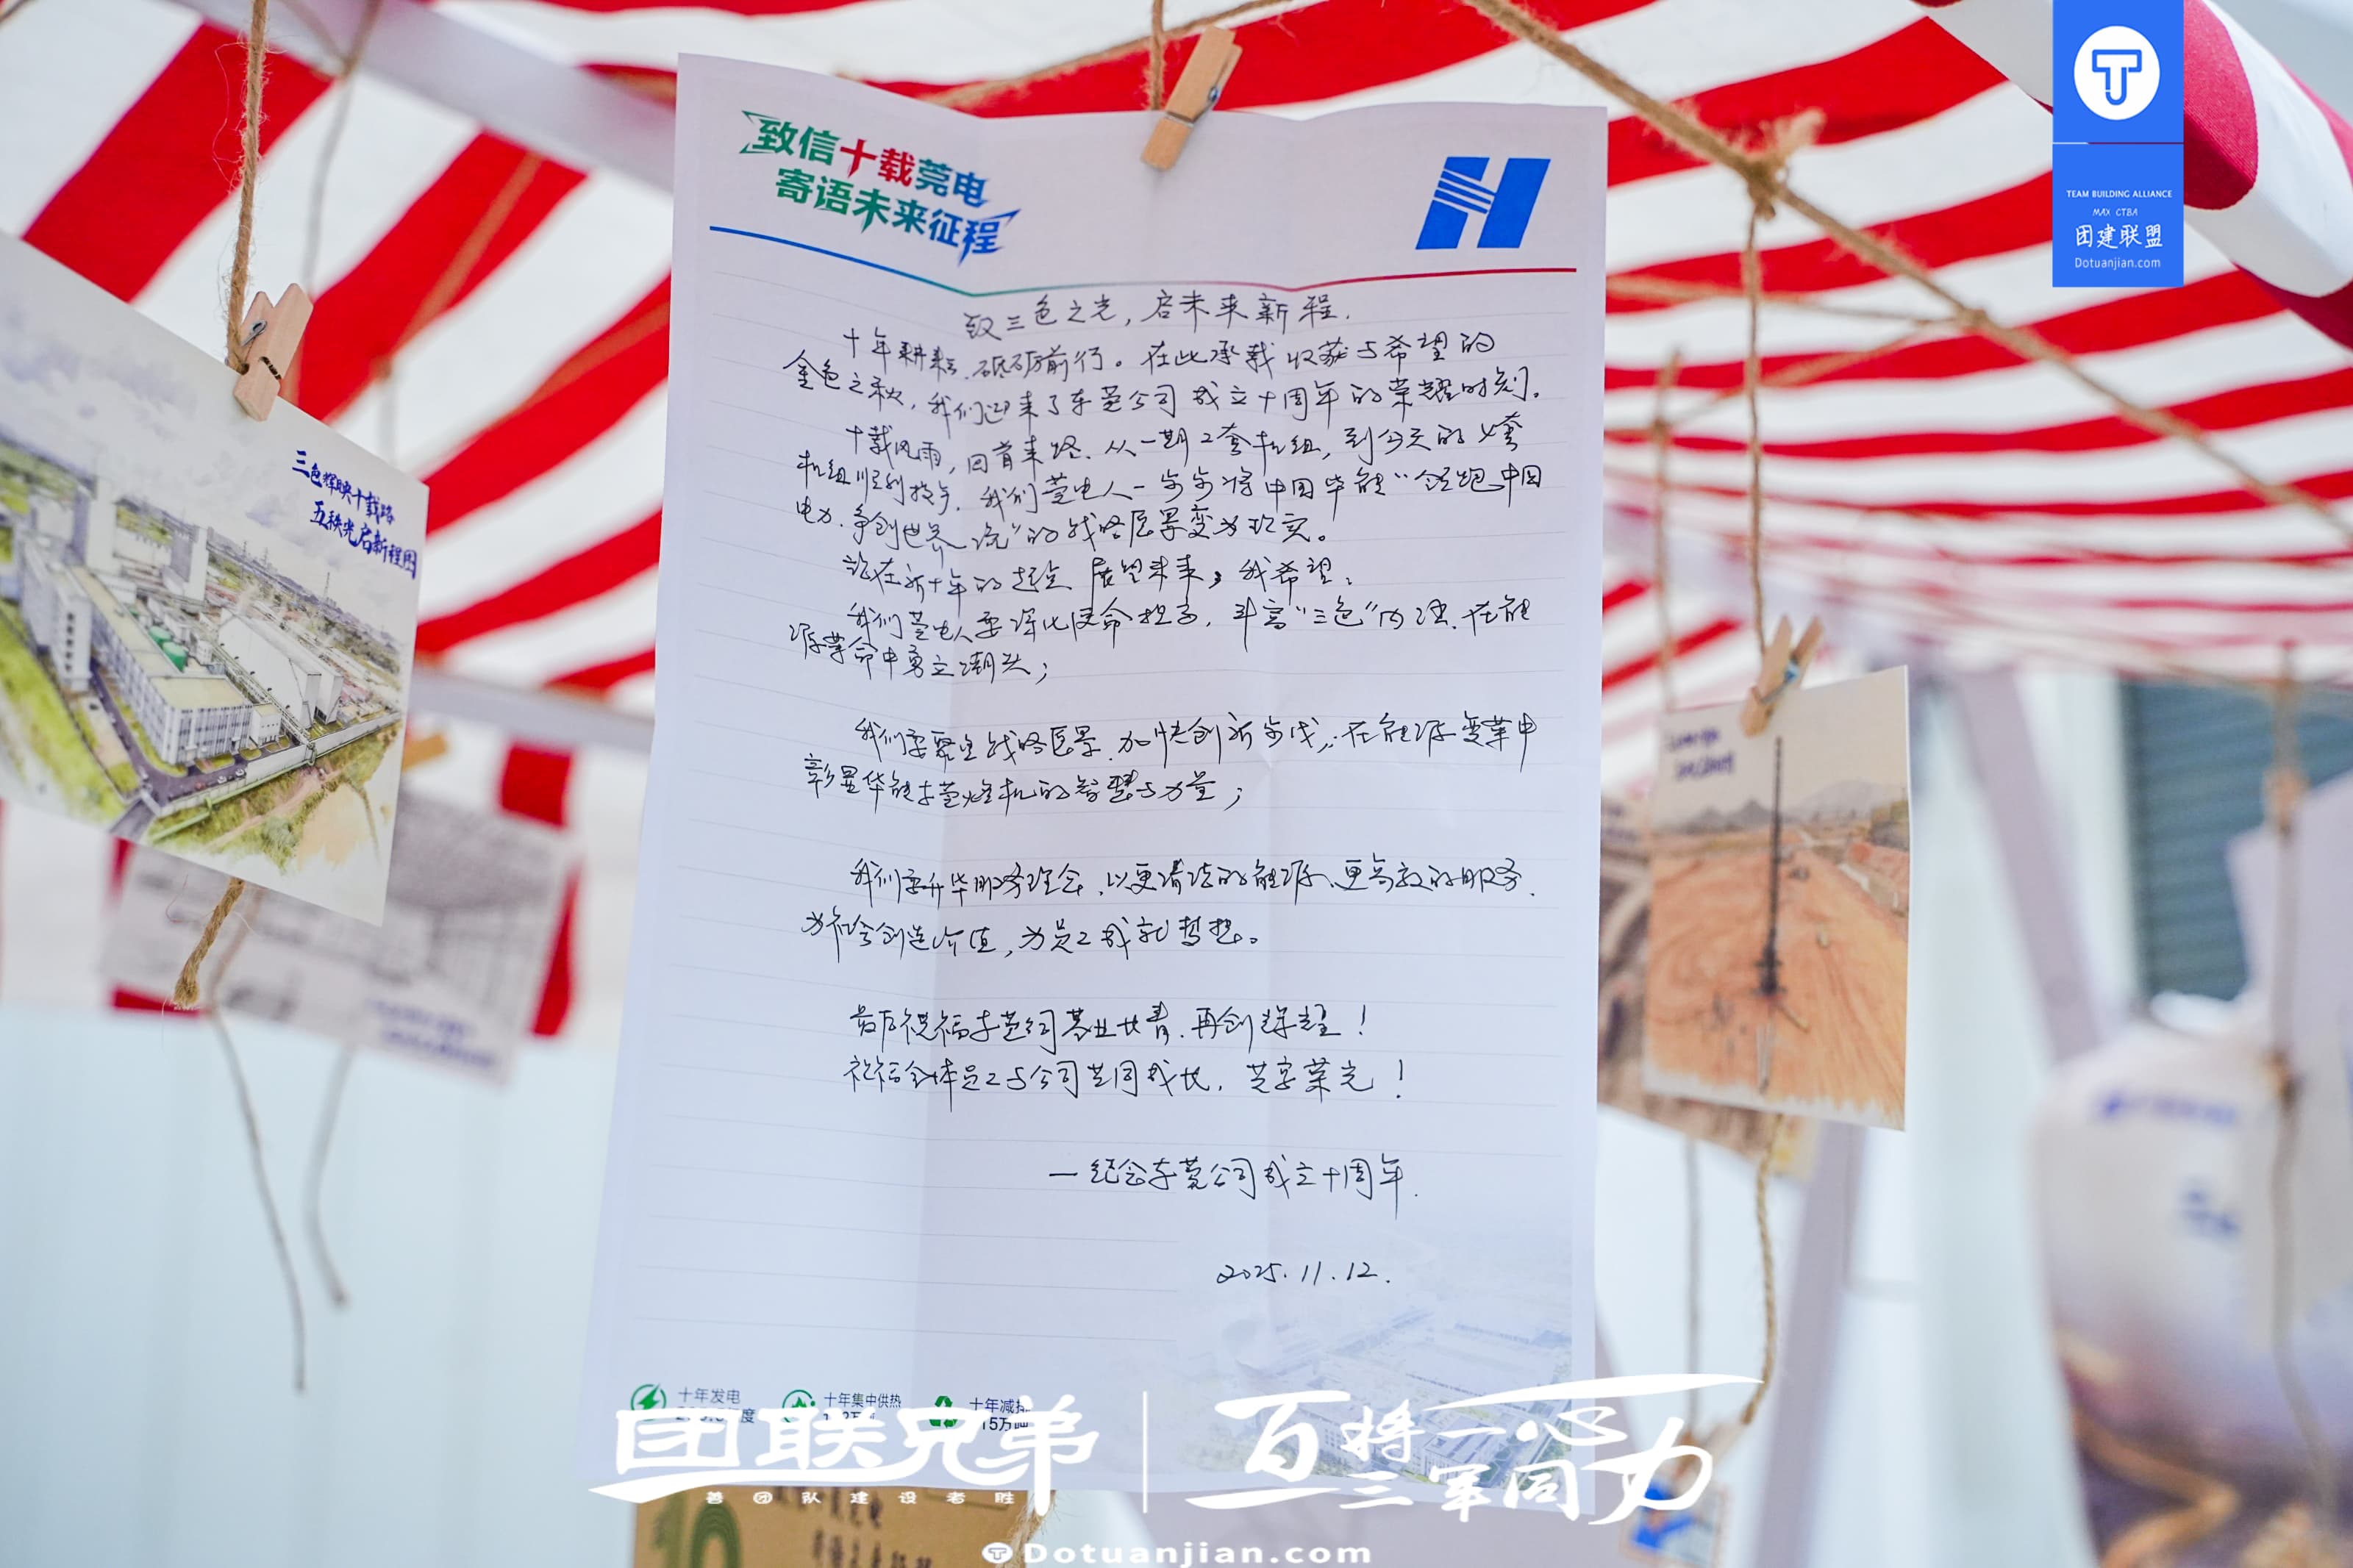 TEAM BUILDING ALLIANCE
MAX CTBA
团建联盟
Dotuanjian.com
致信十载莞电
寄语未来征程
致三色之光,启未来新程.
十年耕耘、砥砺前行。在此承载收获与希望的
金色之秋,我们迎来了东莞公司成立十周年的荣耀时刻.
十载风雨,回首来路.从一期2套机组,到今天的4套
机组顺利投产,我们莞电人一步步将中国华能“领跑中国
电力.争创世界一流”的战略愿景变为现实。
站在新十年的起点 展望未来,我希望:
我们莞电人要深化使命担当,丰富“三色”内涵.在能
源革命中勇立潮头;
我们要聚全战略愿景.加快创新步伐,在能源变革中
彰显华能东莞燃机的智慧与力量;
我们要升华服务理念,以更清洁的能源、更高效的服务.
为社会创造价值,为员工成就梦想。
最后祝福东莞公司基业长青.再创辉煌!
祝福全体员工与公司共同成长,共享荣光!
一纪念东莞公司成立十周年.
2025.11.12.
三色辉映十载路
五秩光启新程图
十年发电
十年集中供热
十年减排
15万吨
团联兄弟
善团队建设者胜
百将一心
三军同力
Dotuanjian.com